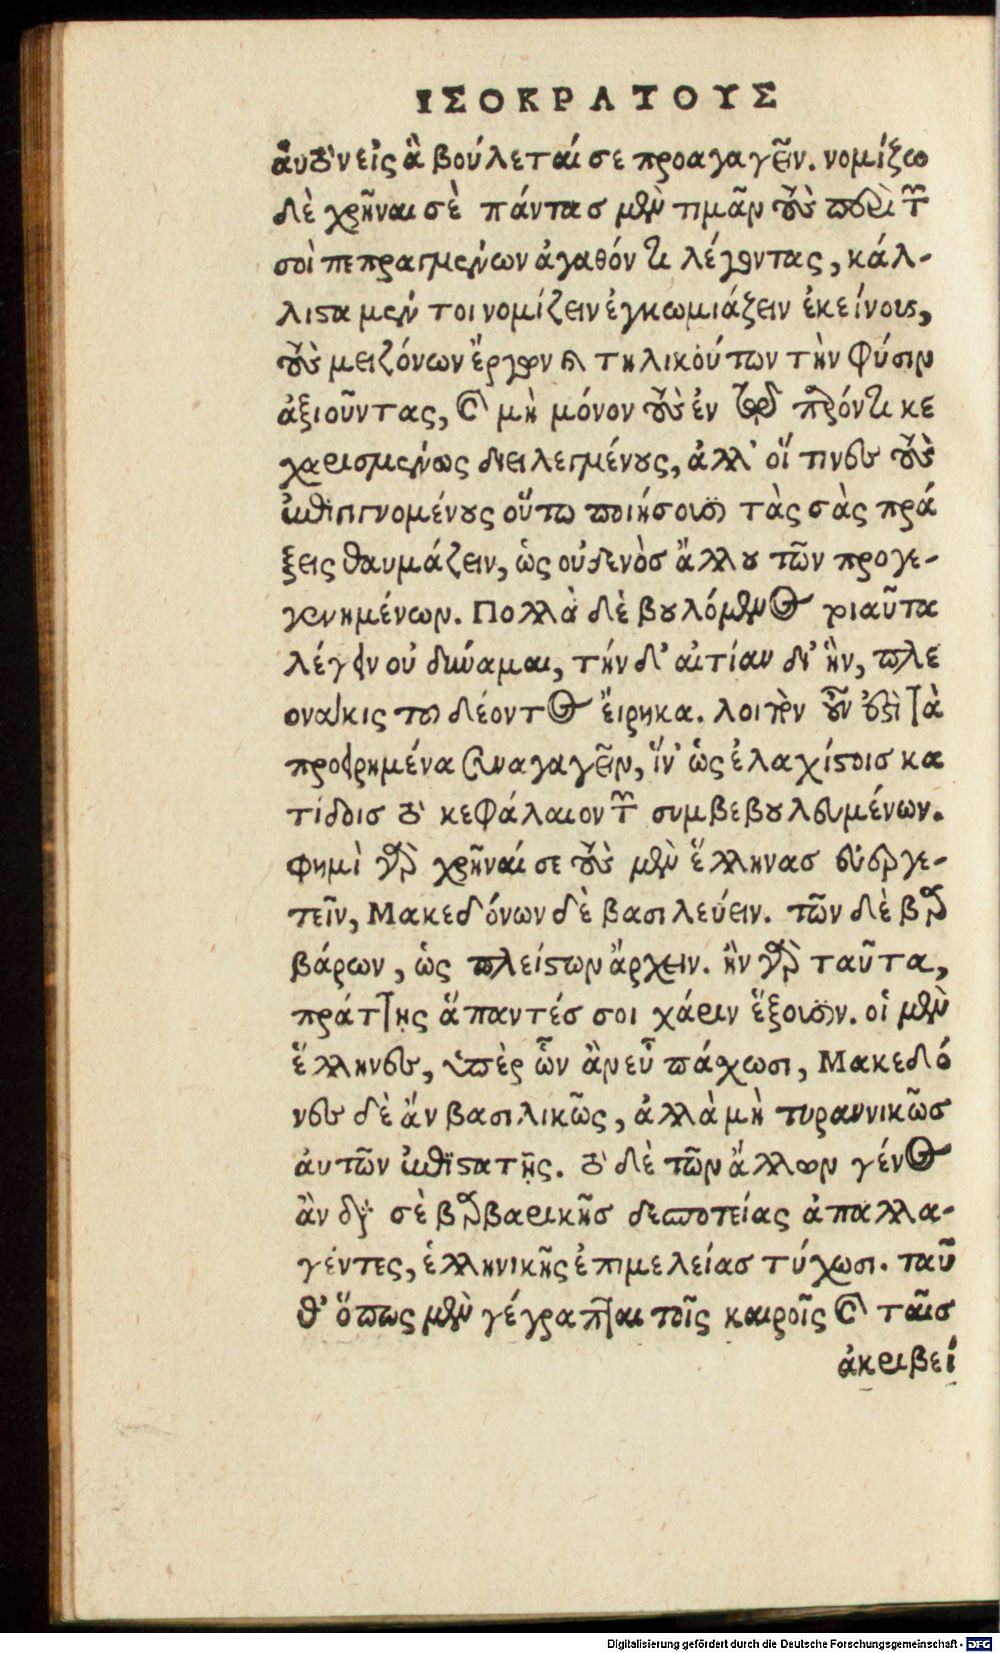 ΙΣΟΚΡΑΤΟΥΣ
ἀυτὸν εἰς ἃ βούλεταί σε προαγαγεῖν. νομίζω
δὲ χρῆναι σὲ πάντασ μὲν τιμᾶν τοὺς περὶ τῶν
σοὶ πεπραγμένων ἀγαθόν τι λέγοντας, κάλ-
λιϛα μέν τοι νομίζειν ἐγκωμιάζειν ἐκείνους,
τοὺς μειζόνων ἔργων ἢ τηλικούτων τὴν φύσιν
ἀξιοῦντας, καὶ μὴ μόνον τοὺς ἐν τῷ παρόντι κε
χαρισμένως διειλεγμένους, ἀλλ' οἵ τινες τοὺς
ἐπιγιγνομένους οὕτω ποιήσουσι τὰς σὰς πρά
ξεις θαυμάζειν, ὡς οὐδενὸσ ἄλλου τῶν προγε-
γενημένων. Πολλὰ δὲ βουλόμενος τοιαῦτα
λέγειν οὐ δύναμαι, τήν δ' αἰτίαν δι' ἣν, πλε
ονακις τοῦ δέοντος ἔιρηκα. λοιπὸν οὖν ἐστὶ τὰ
προειρημένα συναγαγεῖν, ἵν' ὡς ἐλαχίϛοισ κα
τίδοισ τὸ κεφάλαιον τῶν συμβεβουλευμένων.
φημὶ γὰρ χρῆναί σε τοὺς μὲν ἕλληνασ εὐεργε-
τεῖν, Μακεδόνων δὲ βασιλεύειν. τῶν δὲ βαρ
βάρων, ὡς πλείϛων ἄρχειν. ἢν γὰρ ταῦτα,
πράττῃς ἅπαντέσ σοι χάριν ἕξουσιν. οἱ μὲν
ἕλληνες, ὑπὲρ ὧν ἂν εὖ πάχωσι, Μακεδό
νες δὲ ἄν βασιλικῶς, ἀλλὰ μὴ τυραννικῶσ
ἀυτῶν ἐπιϛατῇς. τὸ δὲ τῶν ἄλλων γένος
ἂν διὰ σὲ βαρβαρικῆσ δεσποτείας ἀπαλλα-
γέντες, ἑλληνικῆς ἐπιμελείασ τύχωσι. ταῦ
θ' ὅπως μὲν γέγραπται τοῖς καιροῖς καὶ ταῖσ
ἀκριβεί
Digitalisierung gefördert durch die Deutsche Forschungsgemeinschaft - DFG